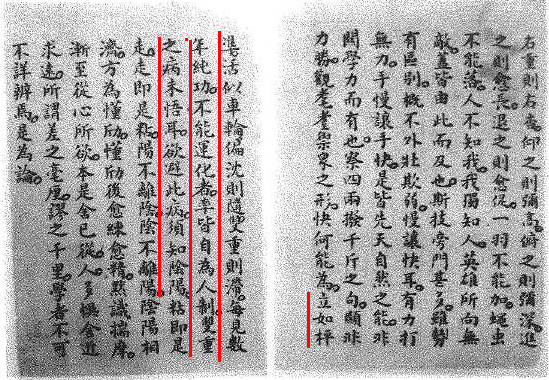 右重則右虛。仰之則彌高。俯之則彌深。進
之則愈長。退之則愈促。一羽不能加。蠅虫
不能落。人不知我。我獨知人。英雄所向無
敵。蓋皆由此而及也。斯技旁門甚多。雖勢
有區別。概不外壯欺弱。慢讓快耳。有力打
無力。手慢讓手快。是皆先天自然之能。非
関學力而有也。察四兩撥千斤之句。顯非
力勝。觀耄耋禦衆之形。快何能為。立如枰
準。活似車輪。偏沈則隨。雙重則滯。每見數
年純功。不能運化者。率皆自為人制。雙重
之病未悟耳。欲避此病。須知陰陽。粘即是
走。走即是粘。陽不離陰。陰不離陽。陰陽相
濟。方為懂劲。懂劲後愈練愈精。黙識揣摩。
漸至從心所欲。本是舍己從人。多悞舍近
求遠。所謂差之毫厘。謬之千里。學者不可
不詳辨焉。是為論。